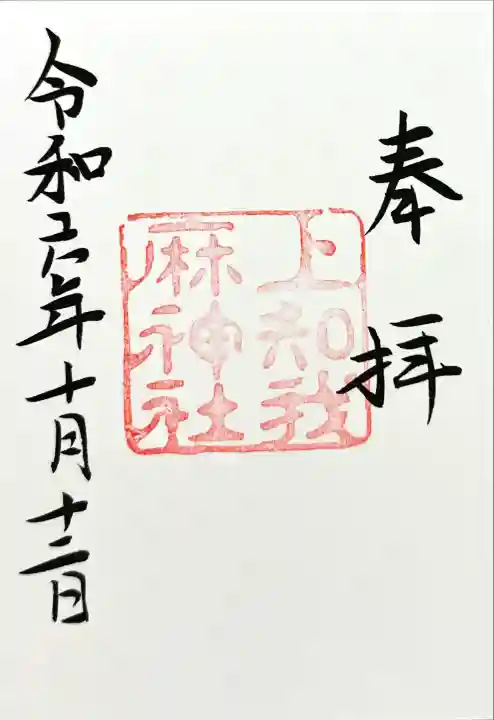 奉拝
上知我
麻神社
令和六年十月十二日